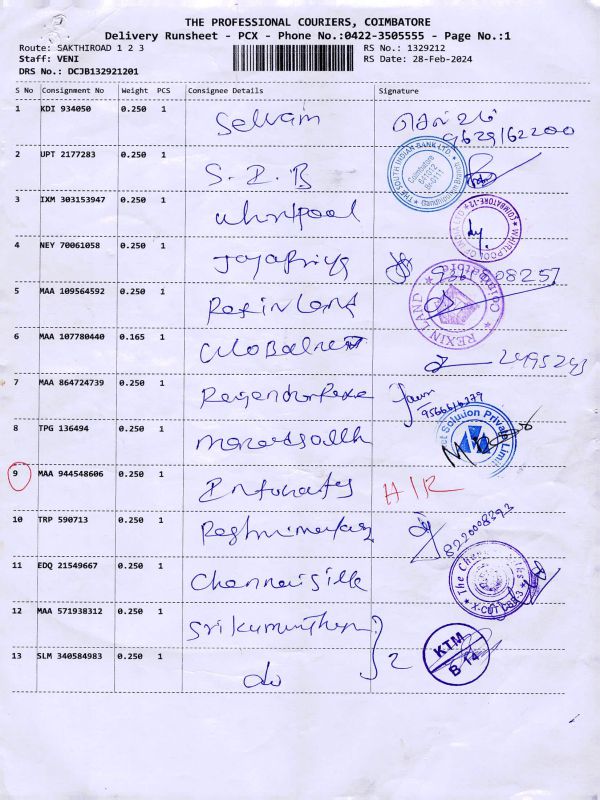 THE PROFESSIONAL COURIERS, COIMBATORE
Delivery Runsheet - PCX - Phone No.:0422-3505555 - Page No.:1
Route: SAKTHIROAD 1 2 3 RS No.: 1329212
Staff: VENI RS Date: 28-Feb-2024
DRS No.: DCJB132921201
S No Consignment No Weight PCS Consignee Details Signature
1 KDI 934050 0.250 1 Selvam 9629162200
2 UPT 2177283 0.250 1 S.I.B THE SOUTH INDIAN BANK LTD. Coimbatore 641012
3 IXM 303153947 0.250 1 Whirlpool WHIRLPOOL OF INDIA LTD COIMBATORE-12
4 NEY 70061058 0.250 1 Jayapriya
5 MAA 109564592 0.250 1 Rexin Land REXIN LAND Coimbatore
6 MAA 107780440 0.165 1 Globalnet 2495243
7 MAA 864724739 0.250 1 9566616379
8 TPG 136494 0.250 1 Solution Private Limit
9 MAA 944548606 0.250 1
10 TRP 590713 0.250 1 8220008393
11 EDQ 21549667 0.250 1 Chennai silk The Chennai X-CUT CBE-3
12 MAA 571938312 0.250 1 Srikumaran KTM
13 SLM 340584983 0.250 1 do 2 B 14